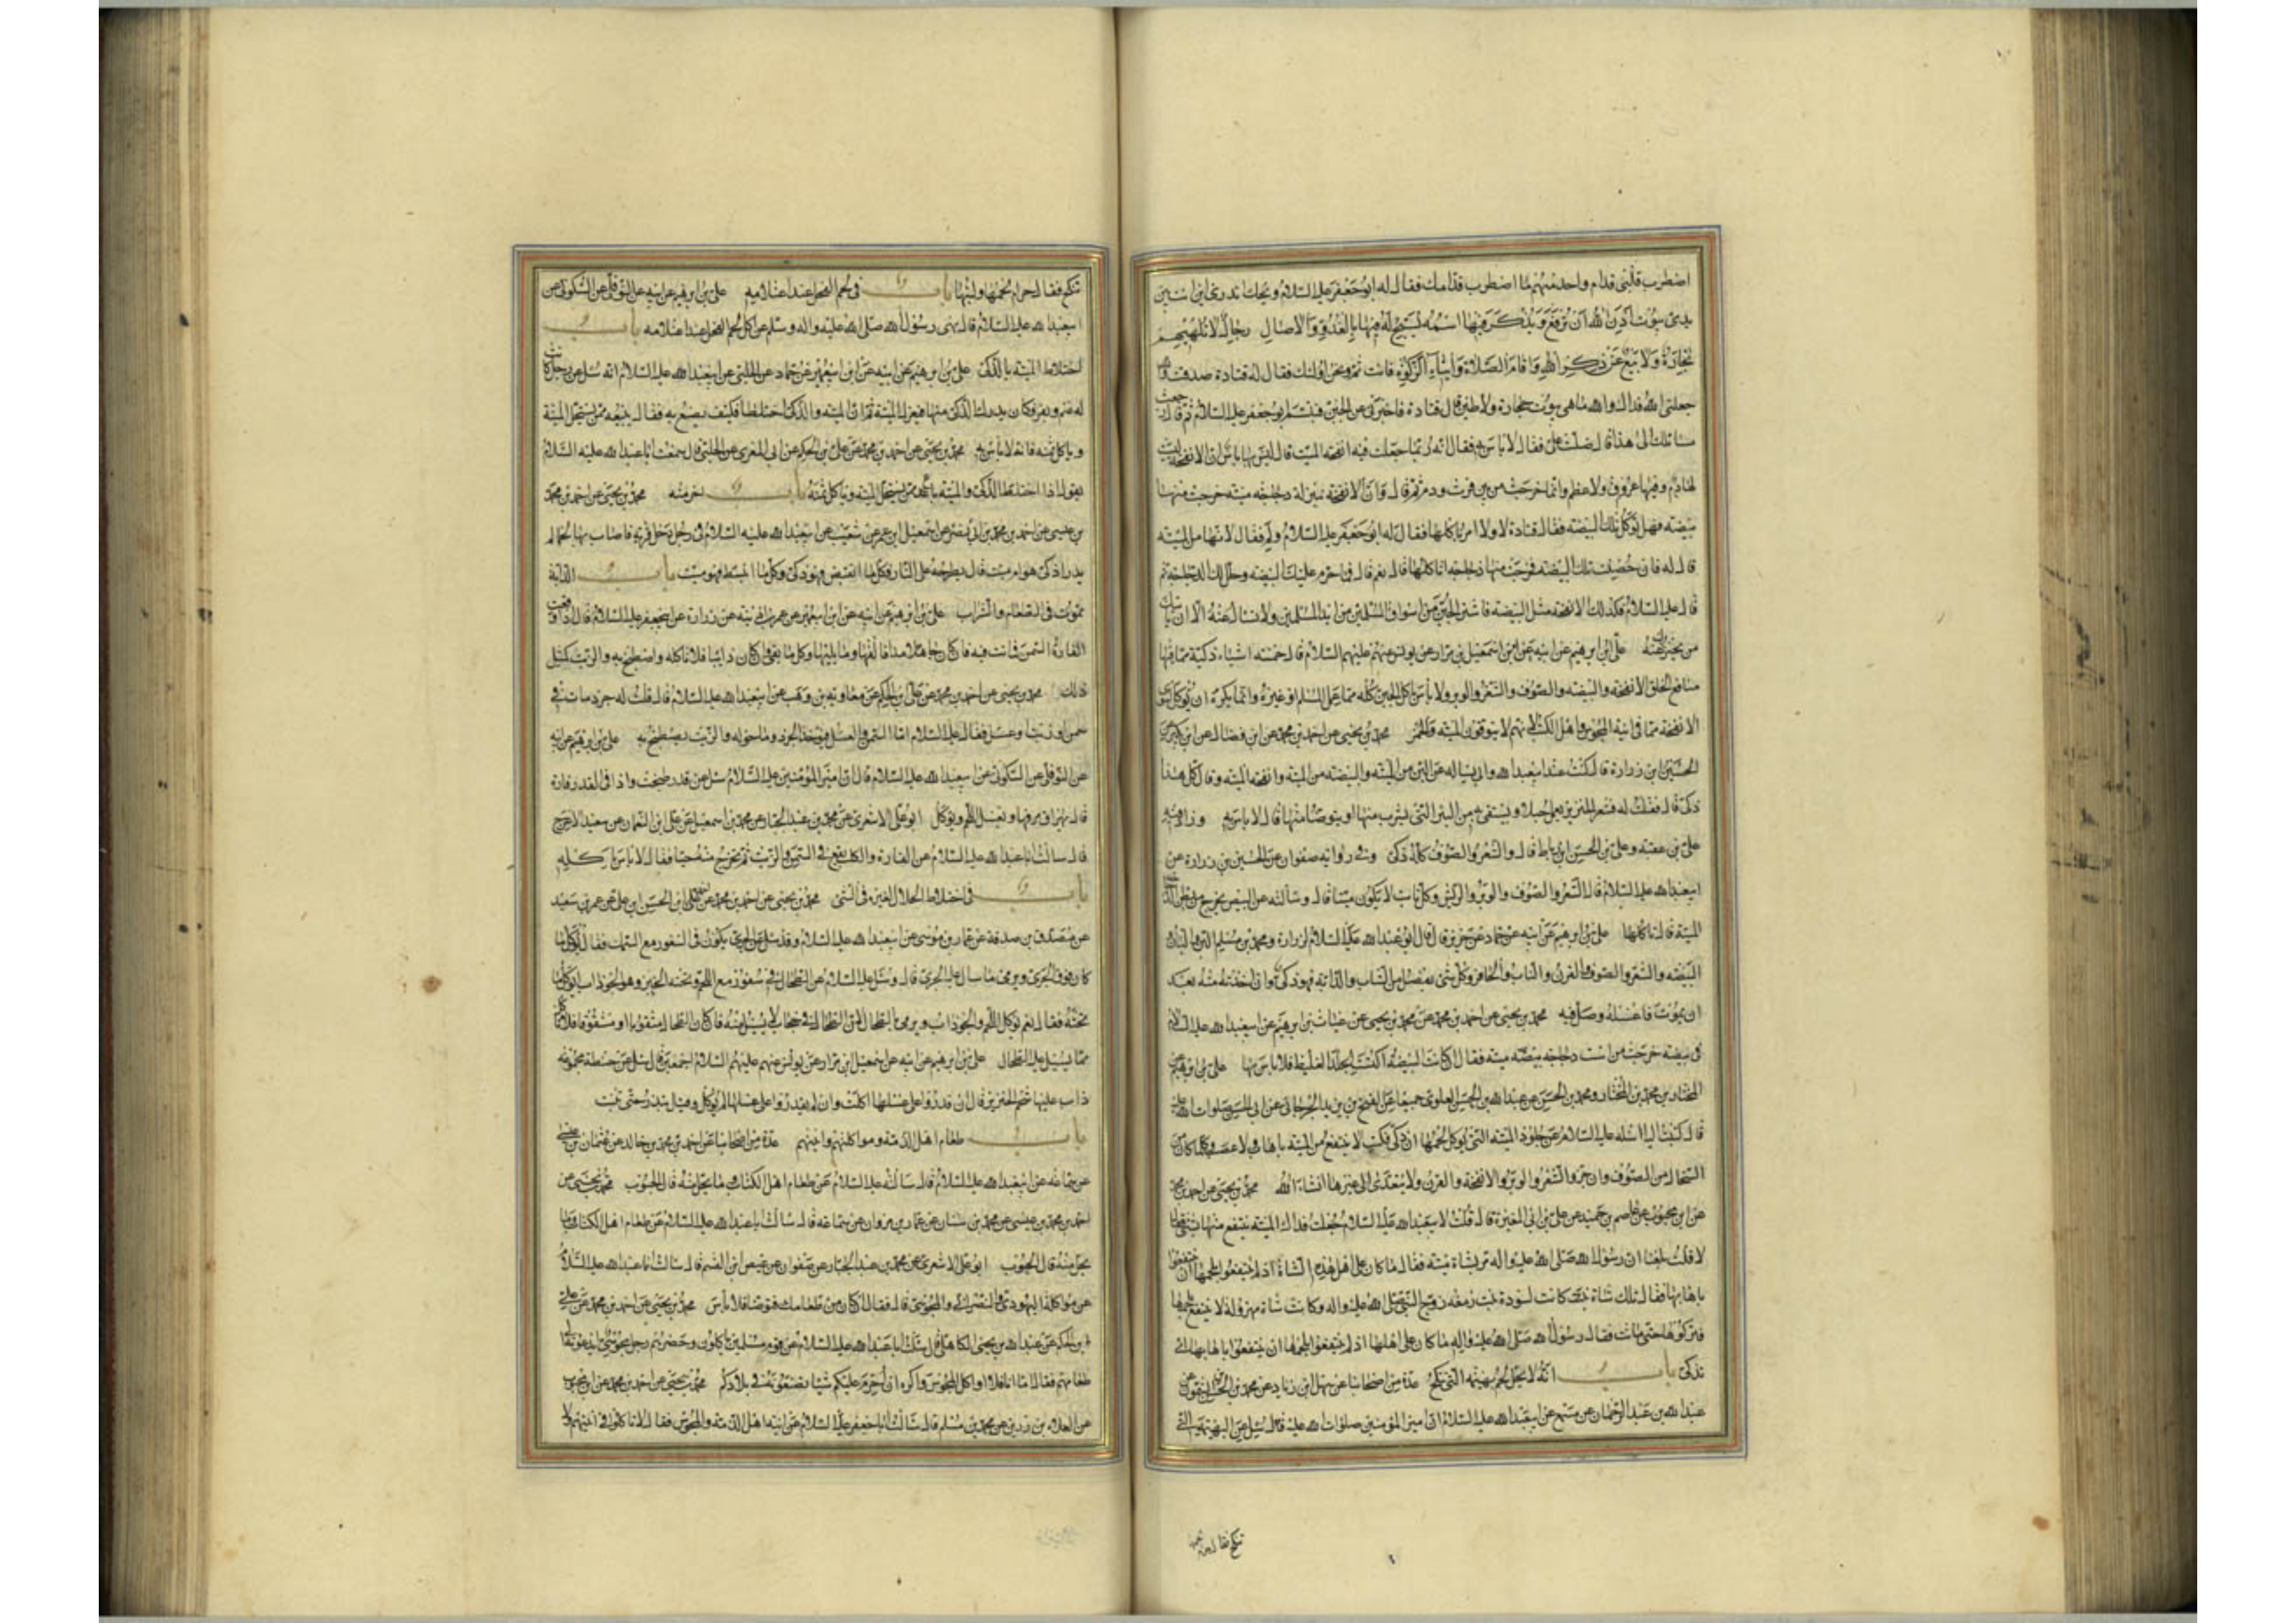 اضطرب قلبي قدام واحد منهم ما اضطرب قدامك فقال له ابو جعفر عليه السلام ويحك اتدري اين انت بين
يدي بيوت اذن الله ان ترفع ويذكر فيها اسمه يسبح له فيها بالغدو والاصال رجال لا تلهيهم
تجارة ولا بيع عن ذكر الله واقام الصلاة وايتاء الزكوة فانت ثم ونحن اولئك فقال له قتادة صدقت والله
جعلني الله فداك والله ما هي بيوت حجارة ولا طين قال قتادة فاخبرني عن الجبن فتبسم ابو جعفر عليه السلام ثم قال رجعت
مسائلك الى هذا قال ضلت علي فقال لا باس به فقال انه ربما جعلت فيه انفحة الميت قال ليس بها باس ان الانفحة ليست
لها دم ولا فيها عروق ولا عظم وانما تخرج من بين فرث ودم ثم قال وان الانفحة بمنزلة دجاجة ميتة خرجت منها
بيضة فهل توكل تلك البيضة فقال قتادة لا ولا امر باكلها فقال له ابو جعفر عليه السلام ولم فقال لانها من الميتة
قال له فان حضنت تلك البيضة فخرجت منها دجاجة اتاكلها قال نعم قال فما حرم عليك البيضة وحلل لك الدجاجة ثم
قال عليه السلام فكذلك الانفحة مثل البيضة فاشتر الجبن من اسواق المسلمين من ايدي المصلين ولا تسال عنه الا ان ياتيك
من يخبرك عنه علي بن ابرهيم عن ابيه عن اسمعيل بن مرار عن يونس عنهم عليهم السلام قال خمسة اشياء ذكية مما فيها
منافع الخلق الانفحة والبيضة والصوف والشعر والوبر ولا باس باكل الجبن كله مما عمل المسلم او غيره وانما يكره ان يوكل سوى
الانفحة مما في انية المجوس واهل الكتاب لانهم لا يتوقون الميتة والخمر محمد بن يحيى عن احمد بن محمد عن ابن فضال عن ابن بكير عن
الحسين بن زرارة قال كنت عند ابي عبد الله وابي يساله عن اللبن من الميتة والبيضة من الميتة وانفحة الميتة وقال كل هذا
ذكي قال فقلت له فشعر الخنزير يعمل حبلا ويستقى به من البئر التي يشرب منها او يتوضا منها قال لا باس به وزاد فيه
علي بن عقبة وعلي بن الحسن بن رباط قال والشعر والصوف كله ذكي وفي رواية صفوان عن الحسين بن زرارة عن
ابي عبد الله عليه السلام قال الشعر والصوف والوبر والريش وكل نابت لا يكون ميتا قال وسالته عن البيضة تخرج من بطن الدجاجة
الميتة قال تاكلها علي بن ابرهيم عن ابيه عن حماد عن حريز قال قال ابو عبد الله عليه السلام لزرارة ومحمد بن مسلم اللبن واللباء
البيضة والشعر والصوف والقرن والناب والحافر وكل شيء يفصل من الشاة والدابة فهو ذكي وان اخذته منه بعد
ان يموت فاغسله وصل فيه محمد بن يحيى عن احمد بن محمد عن محمد بن يحيى عن غياث بن ابرهيم عن ابي عبد الله عليه السلام
في بيضة خرجت من است دجاجة ميتة فقال ان كانت البيضة اكتست الجلد الغليظ فلا باس بها علي بن ابرهيم عن
المختار بن محمد بن المختار ومحمد بن الحسن عن عبد الله بن الحسن العلوي جميعا عن الفتح بن يزيد الجرجاني عن ابي الحسن صلوات الله عليه
قال كتبت اليه اسئله عليه السلام عن جلود الميتة التي يوكل لحمها ان ذكي فكتب لا ينتفع من الميتة باهاب ولا عصب وكلما كان من
السخال من الصوف وان جز والشعر والوبر والانفحة والقرن ولا يتعدى الى غيرها انشاء الله محمد بن يحيى عن احمد بن محمد
عن ابن محبوب عن عاصم بن حميد عن علي بن ابي المغيرة قال قلت لابي عبد الله عليه السلام جعلت فداك الميتة ينتفع منها بشيء فقال
لا قلت بلغنا ان رسول الله صلى الله عليه واله مر بشاة ميتة فقال ما كان على اهل هذه الشاة اذ لم ينتفعوا بلحمها ان ينتفعوا
باهابها فقال تلك شاة كانت لسودة بنت زمعة زوج النبي صلى الله عليه واله وكانت شاة مهزولة لا ينتفع بلحمها
فتركوها حتى ماتت فقال رسول الله صلى الله عليه واله ما كان على اهلها اذ لم ينتفعوا بلحمها ان ينتفعوا باهابها اي
تذكى باب انه لا يحل لحم بهيمة التي تنكح عدة من اصحابنا عن سهل بن زياد عن محمد بن الحسن بن شمون عن
عبد الله بن عبد الرحمان عن مسمع عن ابي عبد الله عليه السلام ان امير المؤمنين صلوات الله عليه قال سئل عن البهيمة التي
تنكح فقال حرام لحمها
تنكح فقال حرام لحمها ولبنها باب في لحم الفحل عند اغتلامه علي بن ابرهيم عن ابيه عن النوفلي عن السكوني عن
ابي عبد الله عليه السلام قال نهى رسول الله صلى الله عليه واله وسلم عن اكل لحم الفحل عند اغتلامه باب
اختلاط الميتة بالذكي علي بن ابرهيم عن ابيه عن ابن ابي عمير عن حماد عن الحلبي عن ابي عبد الله عليه السلام انه سئل عن رجل كانت
له غنم وبقر فكان يدرك الذكي منها فيعزله الميتة ثم ان الميتة والذكي اختلطا فكيف يصنع به فقال يبيعه ممن يستحل الميتة
وياكل ثمنه فانه لا باس به محمد بن يحيى عن احمد بن محمد عن علي بن الحكم عن ابي المغرى عن الحلبي قال سمعت ابا عبد الله عليه السلام
يقول اذا اختلط الذكي والميتة باعه ممن يستحل الميتة وياكل ثمنه باب اخر منه محمد بن يحيى عن احمد بن محمد
بن عيسى عن احمد بن محمد بن ابي نصر عن اسمعيل بن عمر عن شعيب عن ابي عبد الله عليه السلام في رجل دخل قرية فاصاب بها لحما لم
يدر اذكي هو ام ميت قال يطرحه على النار فكل ما انقبض فهو ذكي وكل ما انبسط فهو ميت باب الفارة
تموت في الطعام والشراب علي بن ابرهيم عن ابيه عن ابن ابي عمير عن عمر بن اذينة عن زرارة عن ابي جعفر عليه السلام قال اذا وقعت
الفارة في السمن فماتت فيه فان كان جامدا فالقها وما يليها وكل ما بقي وان كان ذايبا فلا تاكله واستصبح به والزيت مثل
ذلك محمد بن يحيى عن احمد بن محمد عن علي بن الحكم عن معاوية بن وهب عن ابي عبد الله عليه السلام قال قلت له جرذ مات في
سمن او زيت او عسل فقال عليه السلام اما السمن والعسل فيؤخذ الجرذ وما حوله والزيت يستصبح به علي بن ابرهيم عن ابيه
عن النوفلي عن السكوني عن ابي عبد الله عليه السلام قال ان امير المؤمنين عليه السلام سئل عن قدر طبخت واذا في القدر فارة
قال يهراق مرقها ويغسل اللحم ويوكل ابو علي الاشعري عن محمد بن عبد الجبار عن محمد بن اسمعيل عن علي بن النعمان عن سعيد الاعرج
قال سالت ابا عبد الله عليه السلام عن الفارة والكلب يقع في السمن والزيت ثم يخرج منه حيا فقال لا باس باكله
باب في اختلاط الحلال بغيره في الشيء محمد بن يحيى عن احمد بن محمد عن احمد بن الحسن بن علي عن عمرو بن سعيد
عن مصدق بن صدقة عن عمار بن موسى عن ابي عبد الله عليه السلام وقد سئل عن الجري يكون في السفود مع السمك فقال يوكل ما
كان فوق الجري ويرمى ما سال عليه الجري قال وسئل عليه السلام عن الطحال في سفود مع اللحم وتحته الخبز وهو الجوذاب ايوكل ما
تحته فقال نعم يوكل اللحم والجوذاب ويرمى بالطحال لان الطحال في حجاب لا يسيل منه فان كان الطحال مثقوبا او مشقوقا فلا تاكل
مما يسيل عليه الطحال علي بن ابرهيم عن ابيه عن اسمعيل بن مرار عن يونس عنهم عليهم السلام اجمعين قال سئل عن حنطة مجموعة
ذاب عليها شحم الخنزير قال ان قدروا على غسلها اكلت وان لم يقدروا على غسلها لم توكل وقيل تبذر حتى تنبت
باب طعام اهل الذمة ومواكلتهم وانيتهم عدة من اصحابنا عن احمد بن محمد بن خالد عن عثمان بن عيسى
عن سماعة عن ابي عبد الله عليه السلام قال سالته عليه السلام عن طعام اهل الكتاب ما يحل منه قال الحبوب محمد بن يحيى عن
احمد بن محمد بن عيسى عن محمد بن سنان عن عمار بن مروان عن سماعة قال سالت ابا عبد الله عليه السلام عن طعام اهل الكتاب وما
يحل منه قال الحبوب ابو علي الاشعري عن محمد بن عبد الجبار عن صفوان عن عيص بن القسم قال سالت ابا عبد الله عليه السلام
عن مواكلة اليهودي والنصراني والمجوسي قال فقال ان كان من طعامك فتوضا فلا باس محمد بن يحيى عن احمد بن محمد عن علي
بن الحكم عن عبد الله بن يحيى الكاهلي قال سئلت ابا عبد الله عليه السلام عن قوم مسلمين ياكلون وحضرهم رجل مجوسي ايدعونه الى
طعامهم فقال اما انا فلا اواكل المجوسي واكره ان احرم عليكم شيئا تصنعونه في بلادكم محمد بن يحيى عن احمد بن محمد عن ابن محبوب
عن العلاء بن رزين عن محمد بن مسلم قال سالت ابا جعفر عليه السلام عن انية اهل الذمة والمجوس فقال لا تاكلوا في انيتهم ولا